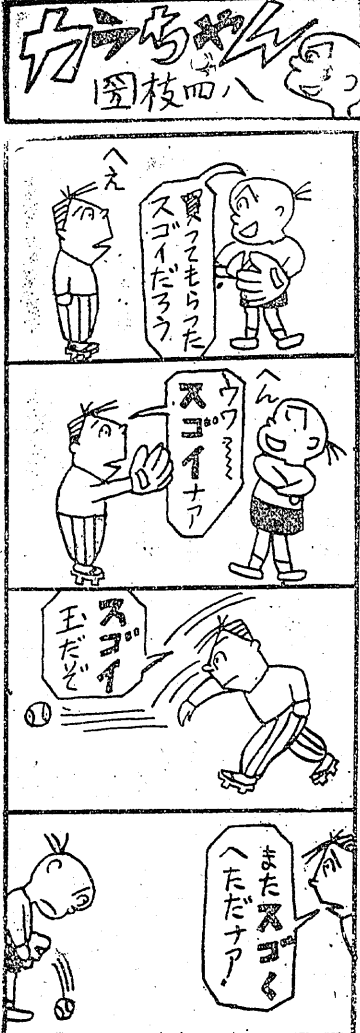 カンちゃん
圀枝四八
買ってもらった
スゴイだろう
へえ
へん
ウワ〜〜
スゴイナァ
スゴイ
玉だぞ
またスゴく
へただナァ！